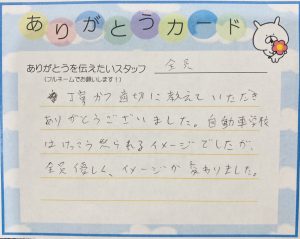 ありがとうカード
ありがとうを伝えたいスタッフ
(フルネームでお願いします!)
全員
丁寧かつ適切に教えていただき
ありがとうございました。自動車学校
はけっこう怒られるイメージでしたが、
全員優しく、イメージが変わりました。